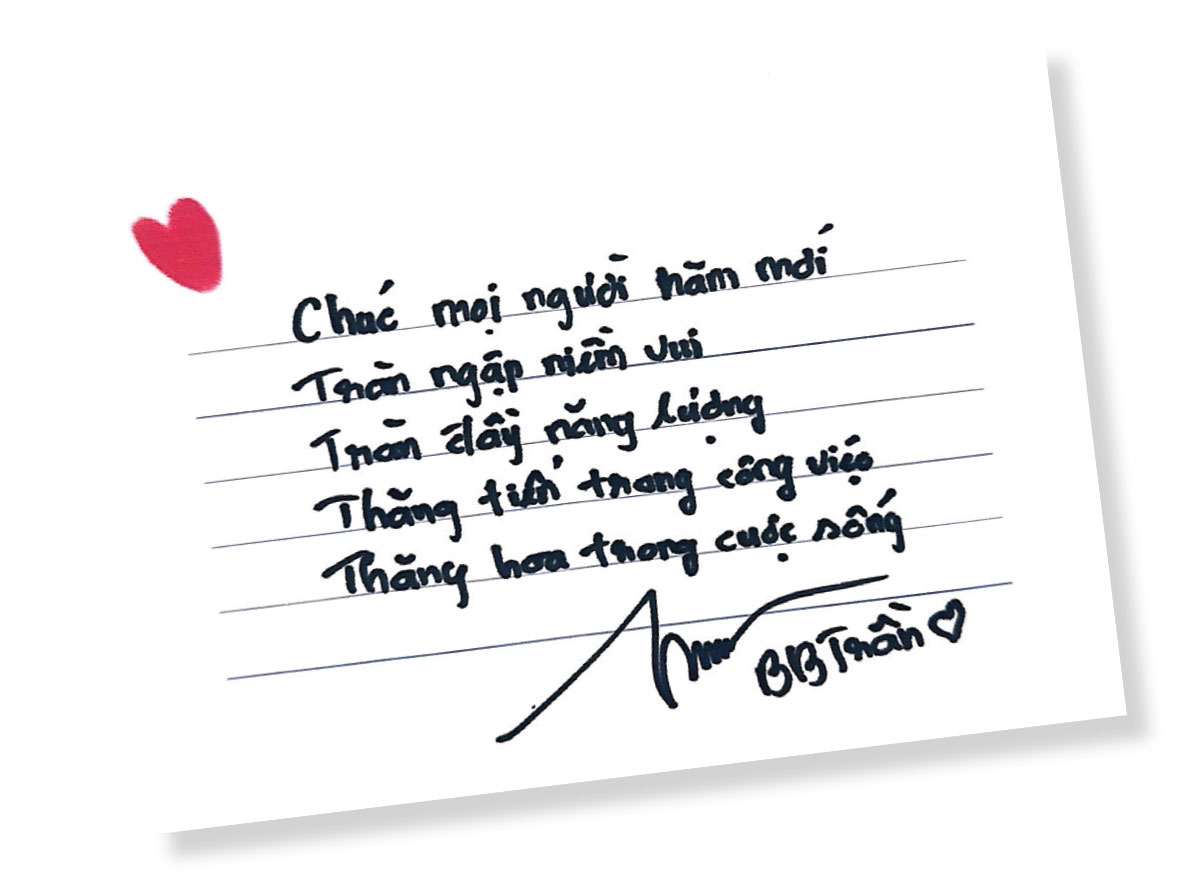 Chúc mọi người năm mới
Tràn ngập niềm vui
Tràn đầy năng lượng
Thăng tiến trong công việc
Thăng hoa trong cuộc sống
BB Trần ♡